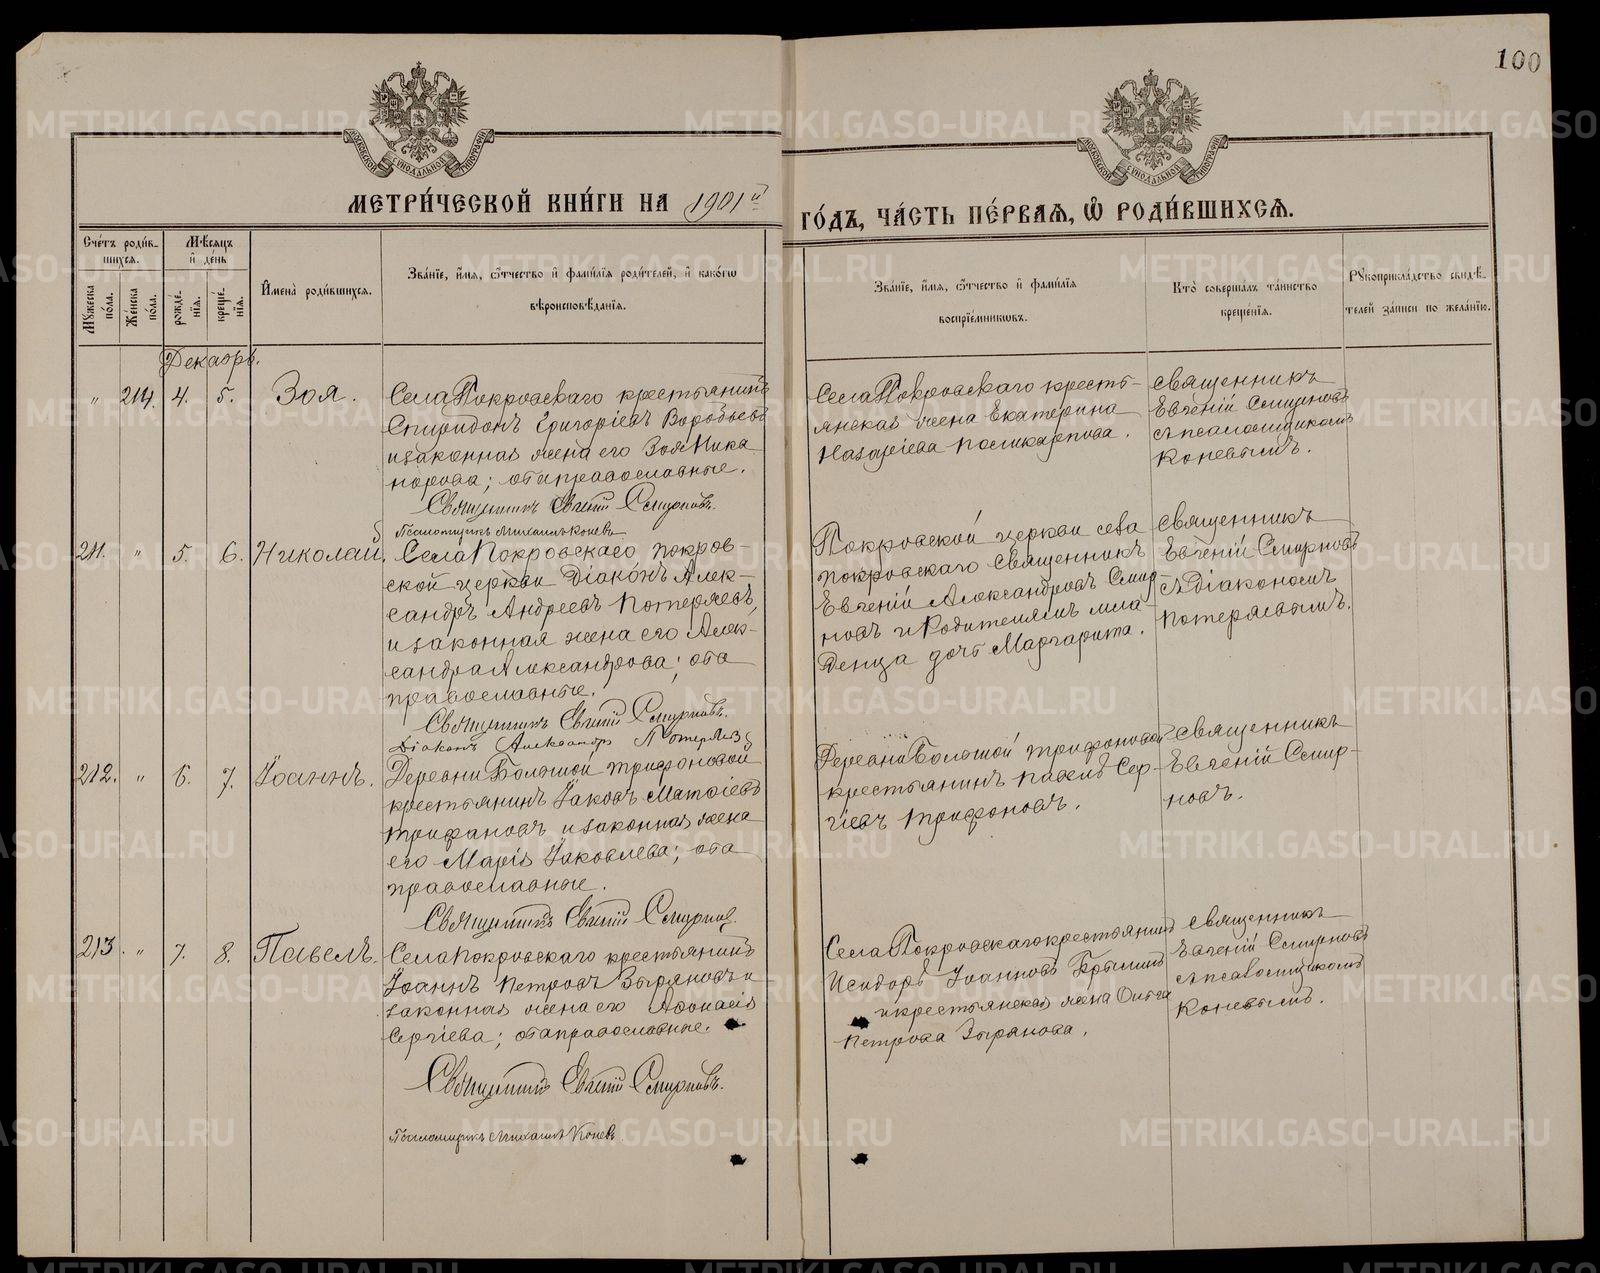 100
МОСКОВСКОЙ СѴНОДАЛЬНОЙ ТИПОГРАФІИ
МОСКОВСКОЙ СѴНОДАЛЬНОЙ ТИПОГРАФІИ
МЕТРИ́ЧЕСКОЙ КНИ́ГИ НА 1901й
ГО́ДЪ, ЧА́СТЬ ПЕ́РВАѦ, Ѡ҆ РОДИ́ВШИХСѦ.
Сче́тъ роди́в-
шихсѧ.
Мѣ́сѧцъ
и҆ де́нь
Мꙋ́жеска
по́ла.
Же́нска
по́ла.
рожде́-
нїѧ.
креще́-
нїѧ.
И҆мена̀ роди́вшихсѧ.
Зва́нїе, и҆́мѧ, ѻ҆́тчество и҆ фами́лїѧ роди́телей, и҆ како́гѡ
вѣроисповѣ́данїѧ.
Зва́нїе, и҆́мѧ, ѻ҆́тчество и҆ фами́лїѧ
воспрїе́мникѡвъ.
Кто̀ соверша́лъ та́инство
креще́нїѧ.
Рꙋкоприкла́дство свидѣ́-
телей за́писи по жела́нїю.
Декабрь.
" 214. 4. 5. Зоя.
Села Покровскаго крестьянинъ
Спиридонъ Григоріевъ Воробьевъ
и законная жена его Зоя Ника-
норова; оба православные.
Священникъ Евгеній Смирновъ.
Псаломщикъ Михаилъ Коневъ
Села Покровскаго кресть-
янская жена Екатерина
Назаріева Поликарпова.
Священникъ
Евгеній Смирновъ
съ псаломщикомъ
Коневымъ.
211. " 5. 6. Николай.
Села Покровскаго Покров-
ской церкви Діаконъ Алек-
сандръ Андреевъ Потеряевъ,
и законная жена его Алек-
сандра Александрова; оба
православные.
Священникъ Евгеній Смирновъ.
Діаконъ Александръ Потеряевъ
Покровской церкви села
Покровскаго Священникъ
Евгеній Александровъ Смир-
новъ и Родителямъ мла-
денца дочь Маргарита.
Священникъ
Евгеній Смирновъ
съ Діакономъ
Потеряевымъ.
212. " 6. 7. Іоаннъ.
Деревни Большой Трифоновой
крестьянинъ Іаковъ Матѳіевъ
Трифановъ и законная жена
его Марія Іаковлева; оба
православные.
Священникъ Евгеній Смирновъ.
Деревни Большой Трифоновой
крестьянинъ Павелъ Сер-
гіевъ Трифоновъ.
Священникъ
Евгеній Смир-
новъ.
213. " 7. 8. Павелъ.
Села Покровскаго крестьянинъ
Іоаннъ Петровъ Зыряновъ и
законная жена его Аѳонасія
Сергіева; оба православные.
Священникъ Евгеній Смирновъ.
Псаломщикъ Михаилъ Коневъ
Села Покровскаго крестьянинъ
Исидоръ Іоанновъ
и крестьянская жена Ольга
Петрова Зырянова.
Священникъ
Евгеній Смирновъ
съ псаломщикомъ
Коневымъ.
METRIKI.GASO-URAL.RU